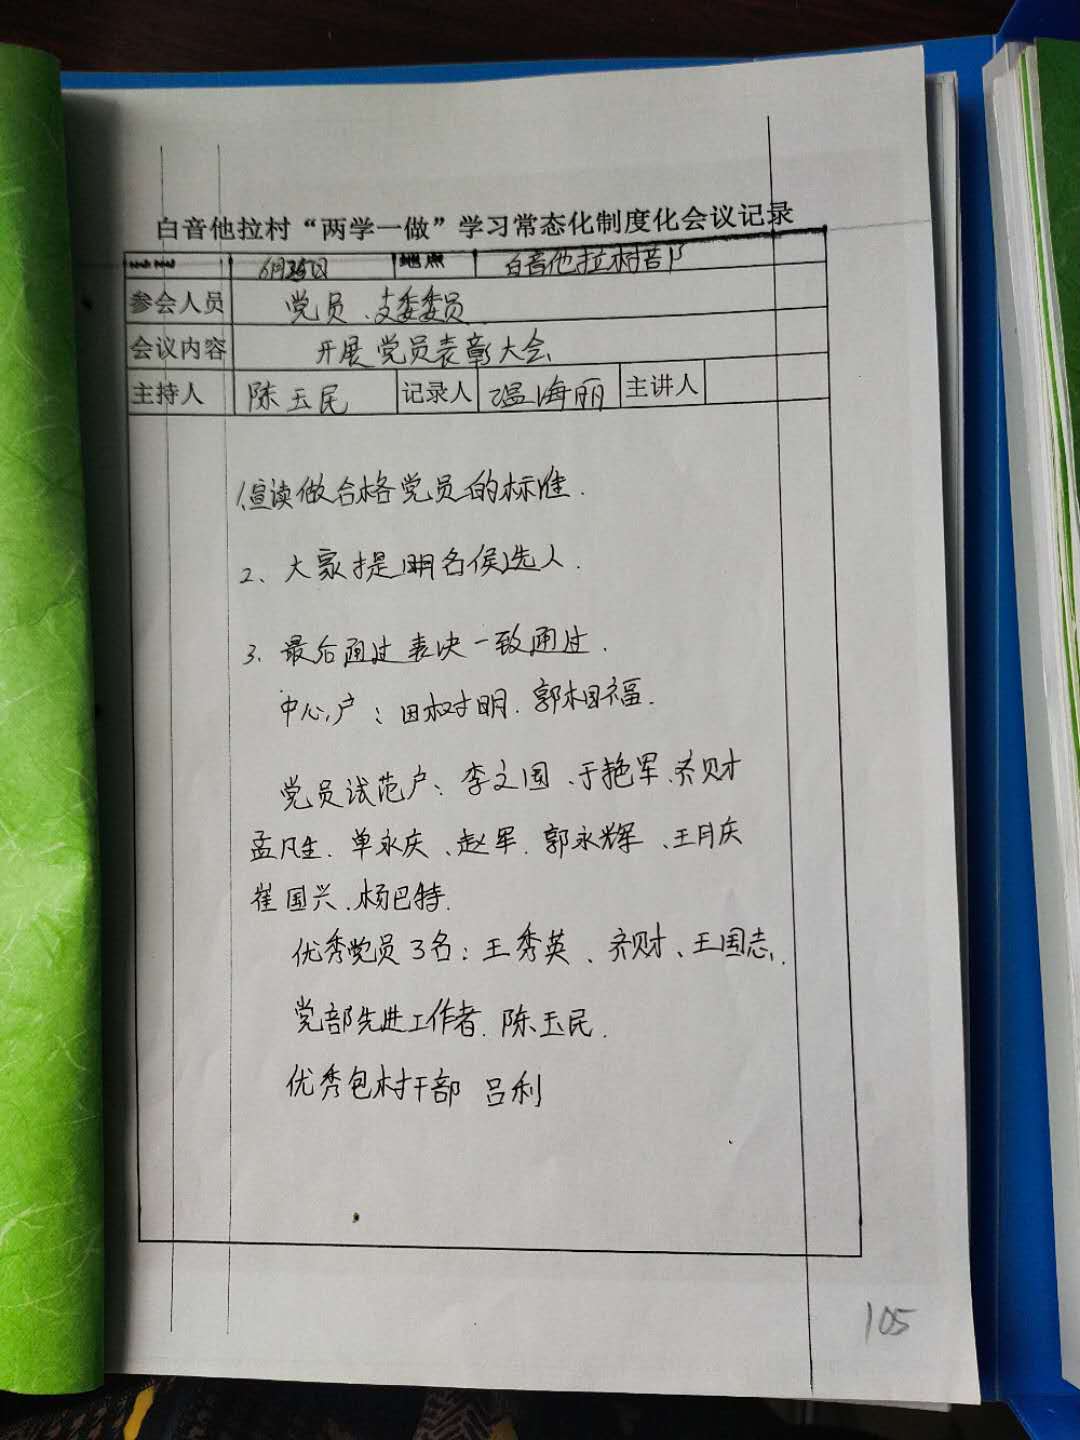 白音他拉村“两学一做”学习常态化制度化会议记录
6月25日 地点 白音他拉村部
参会人员 党员、支委委员
会议内容 开展党员表彰大会
主持人 陈玉民 记录人 温海丽 主讲人
1、宣读做合格党员的标准.
2、大家提明名候选人.
3、最后通过表决一致通过.
中心户：田树明.郭相福.
党员试范户：李文国、于艳军、齐财
孟凡生.单永庆、赵军.郭永辉、王月庆
崔国兴、杨巴特.
优秀党员3名：王秀英、齐财、王国志.
党部先进工作者.陈玉民.
优秀包村干部 吕利
105